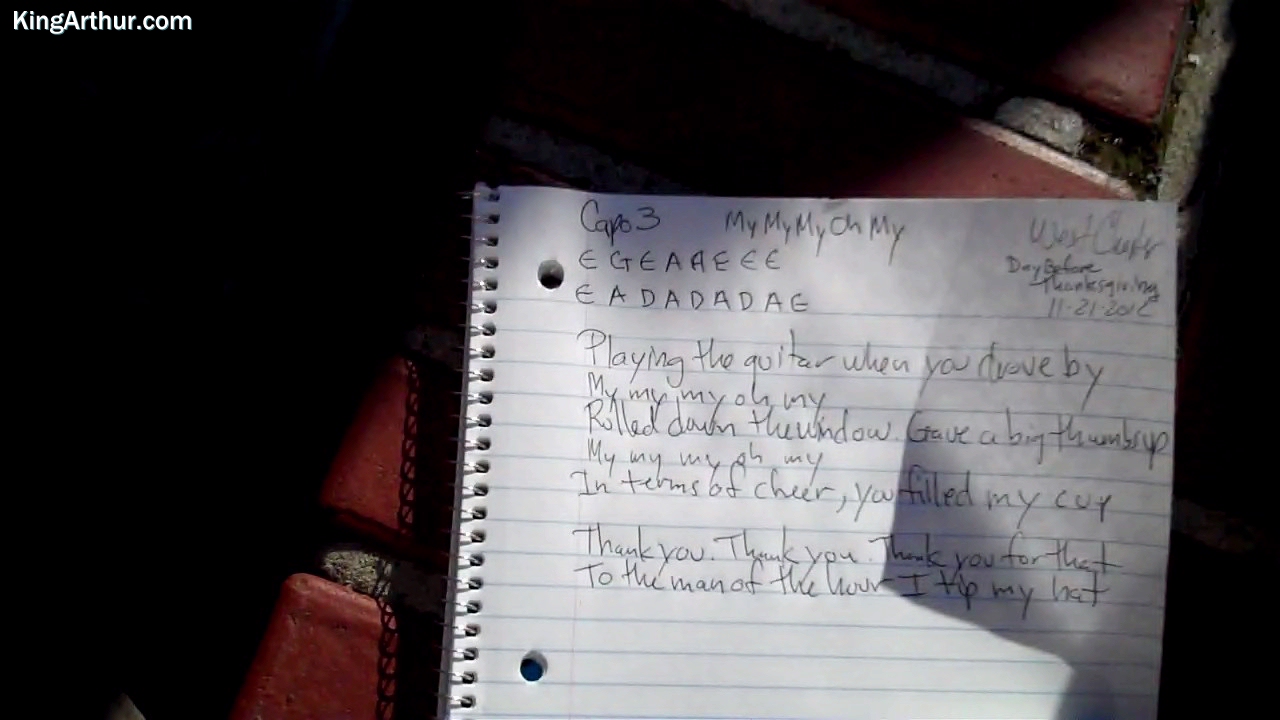 KingArthur.com
Capo 3 My My My Oh My
West Chester
E G E A A E E E
Day Before
Thanksgiving
E A D A D A D A E
11-21-2012
Playing the guitar when you drove by
My my my oh my
Rolled down the window. Gave a big thumbs up
My my my oh my
In terms of cheer, you filled my cup
Thank you. Thank you. Thank you for that
To the man of the hour I tip my hat